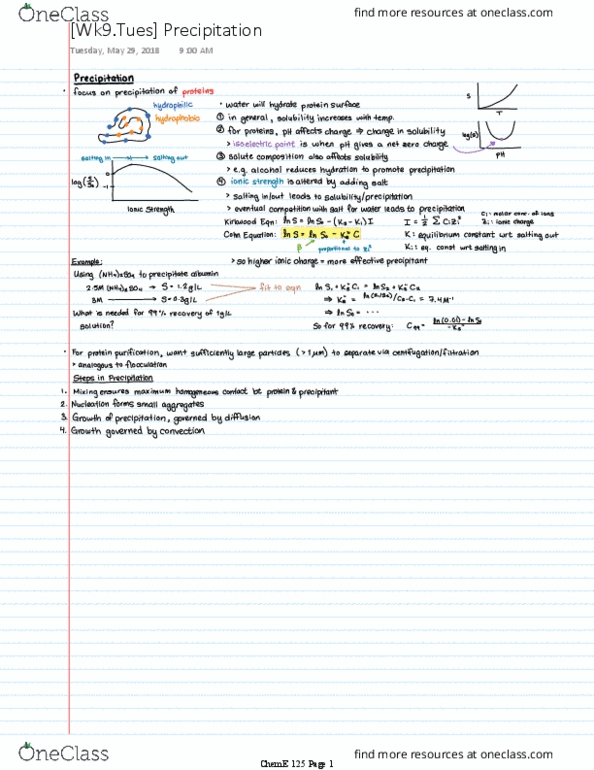 OneClass
find more resources at oneclass.com
[Wk9.Tues] Precipitation
Tuesday, May 29, 2018 9:00 AM
Precipitation
• focus on precipitation of proteins
hydrophilic
hydrophobic
salting in salting out
log(S/S₀)
0
-1
Ionic Strength
• water will hydrate protein surface
① in general, solubility increases with temp.
② for proteins, pH affects charge ⇒ change in solubility
> isoelectric point is when pH gives a net zero charge
③ solute composition also affects solubility
> e.g. alcohol reduces hydration to promote precipitation
④ ionic strength is altered by adding salt
> salting in/out leads to solubility/precipitation
> eventual competition with salt for water leads to precipitation
S
T
log(S)
pH
Kirkwood Eqn: ln S = ln S₀ - (Kₛ - Kᵢ) I
I = ½ Σ CᵢZᵢ²
Cᵢ: molar conc. of ions
Zᵢ: ionic charge
Cohn Equation: ln S = ln S₀ - Kₛ" C
K: equilibrium constant wrt salting out
β
proportional to Zᵢ²
Kᵢ: eq. const wrt salting in
> so higher ionic charge = more effective precipitant
Example:
Using (NH₄)₂SO₄ to precipitate albumin
2.5M (NH₄)₂SO₄ → S = 1.2g/L
3M → S = 0.3g/L
fit to eqn
What is needed for 99% recovery of 1g/L
solution?
⇒ ln S₀ = ...
So for 99% recovery: C₉₉ = ln(0.01) - ln S₀ / -Kₛ"
• For protein purification, want sufficiently large particles (>1μm) to separate via centifugation/filtration
> analogous to flocculation
Steps in Precipitation
1. Mixing ensures maximum homogeneous contact bt protein & precipitant
2. Nucleation forms small aggregates
3. Growth of precipitation, governed by diffusion
4. Growth governed by convection
OneClass
find more resources at oneclass.com
ChemE 125 Page 1